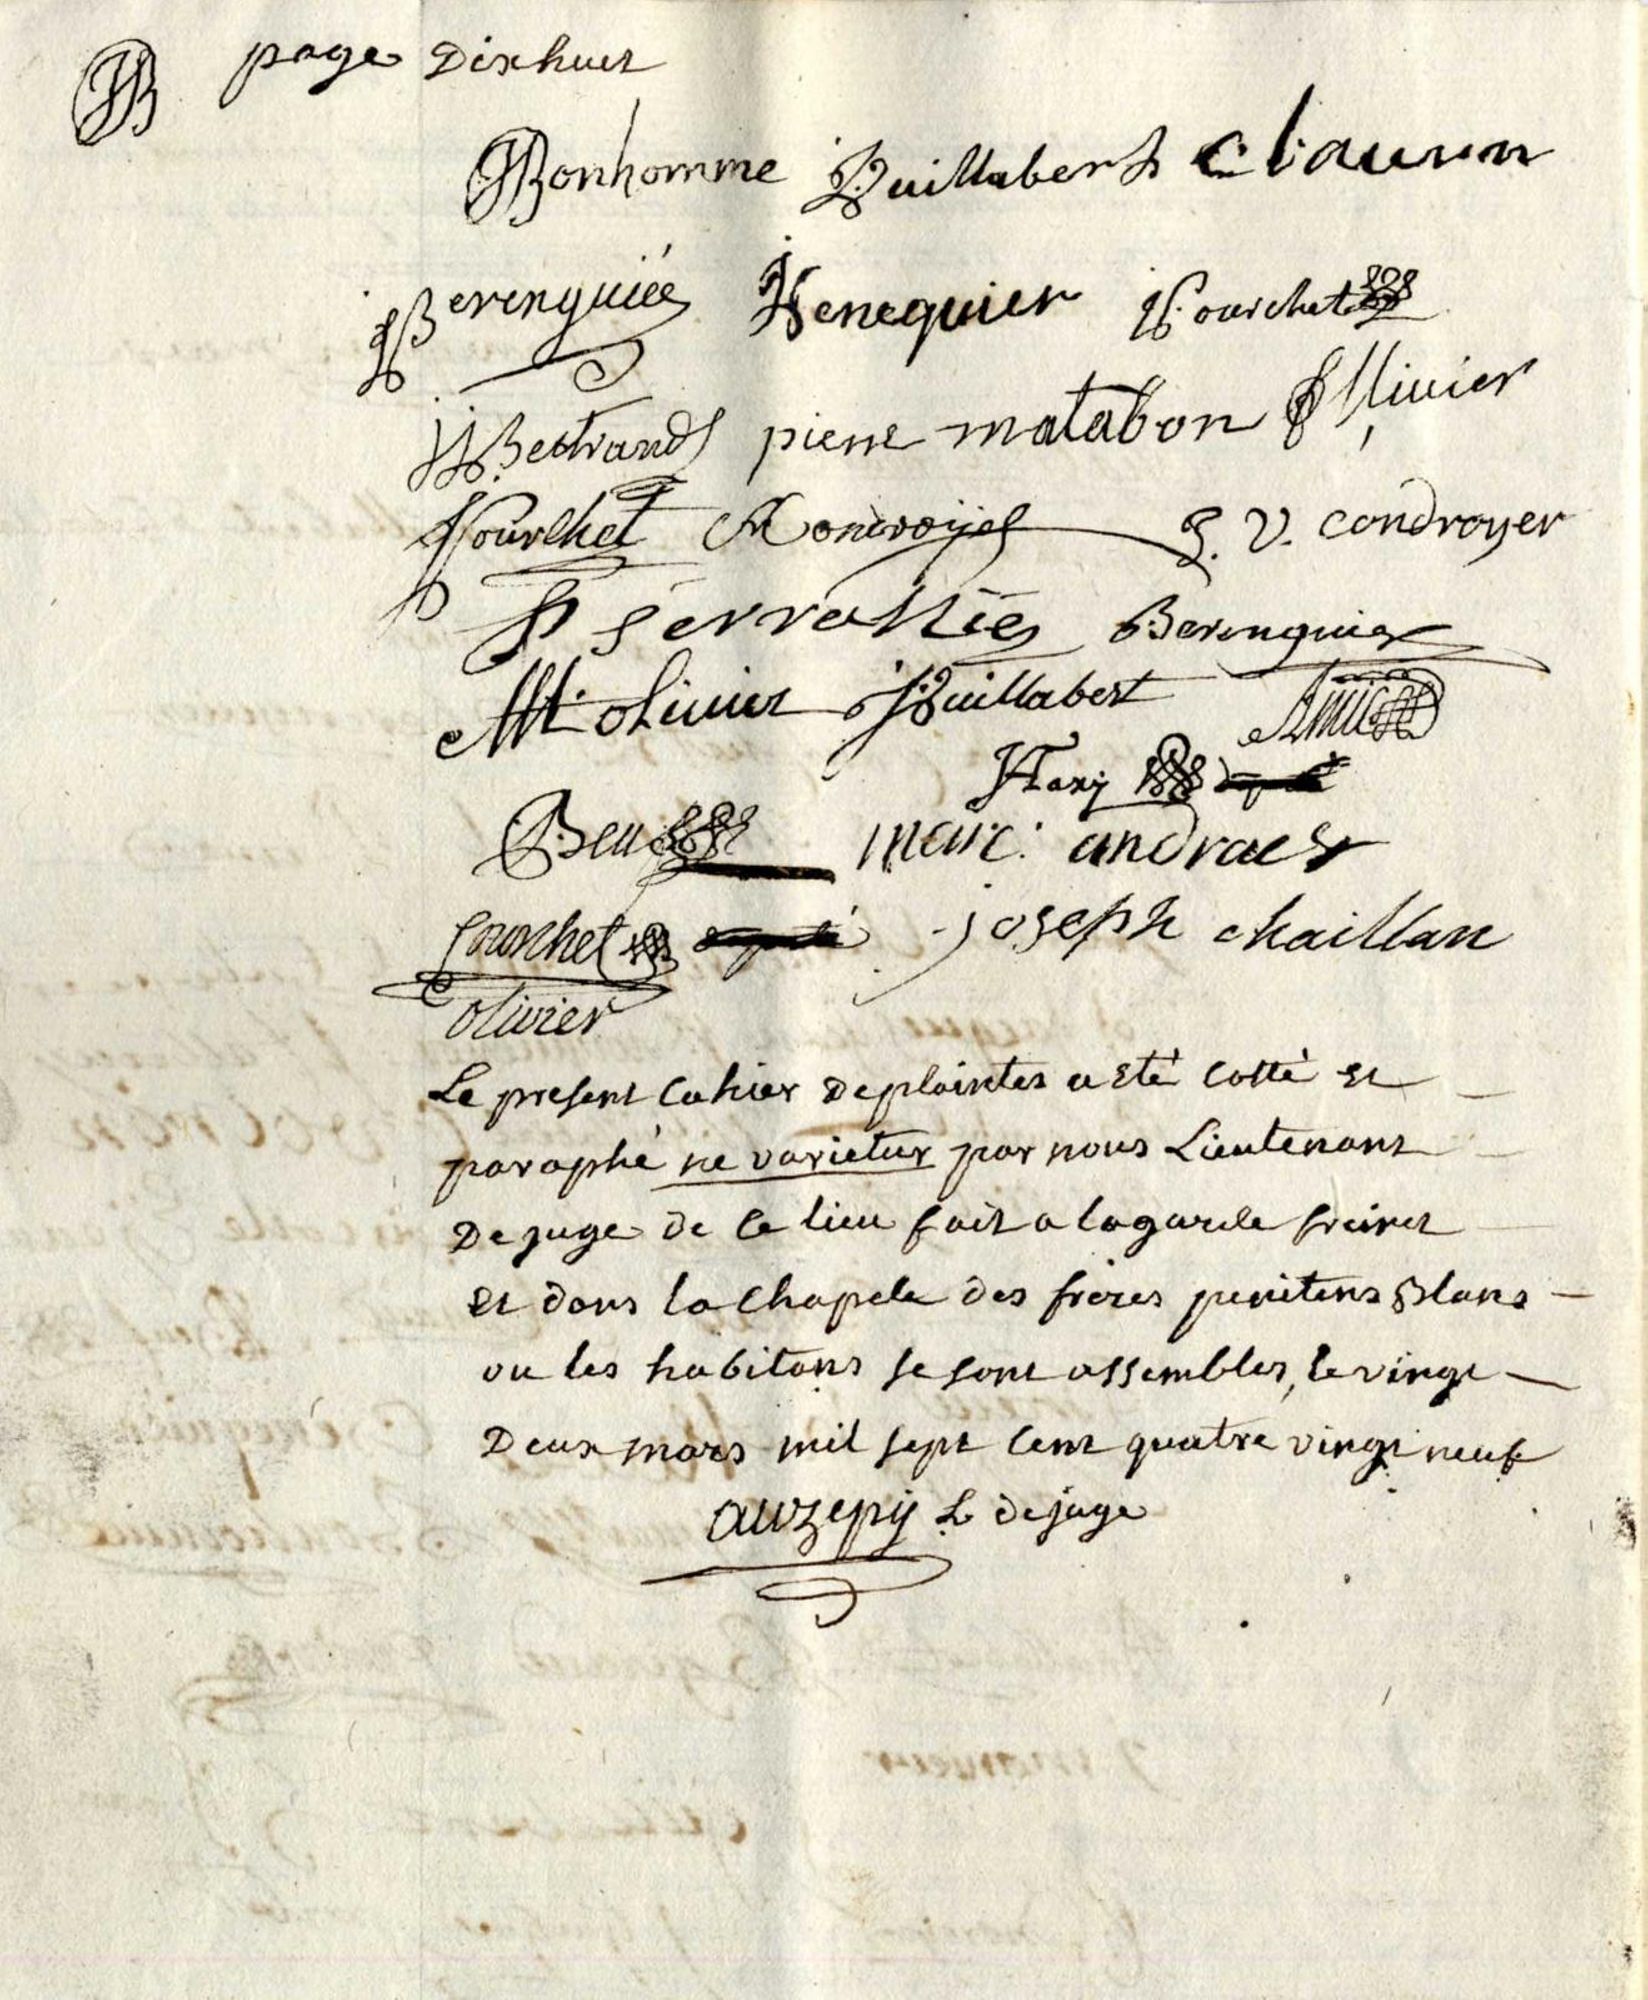 page Dixhuit
Bonhomme Guillabert Clavun
Berenguier Senequier Courchet
Bertrand pierre matabon Ollivier
Courchet Condroyer V. condroyer
Serrallier Berenguier
olivier Guillabert Amic
Tary
marc andrac
Courchet joseph chaillan
olivier
Le present Cahier De plaintes a eté cotté et
paraphé ne varietur par nous Lieutenant
De juge de Ce lieu fait a lagarde freinet
et dans la Chapele des freres penitens Blans
ou les habitans se sont assembles, le vingt
Deux mars mil sept Cent quatre vingt neuf
auzepy L. de juge